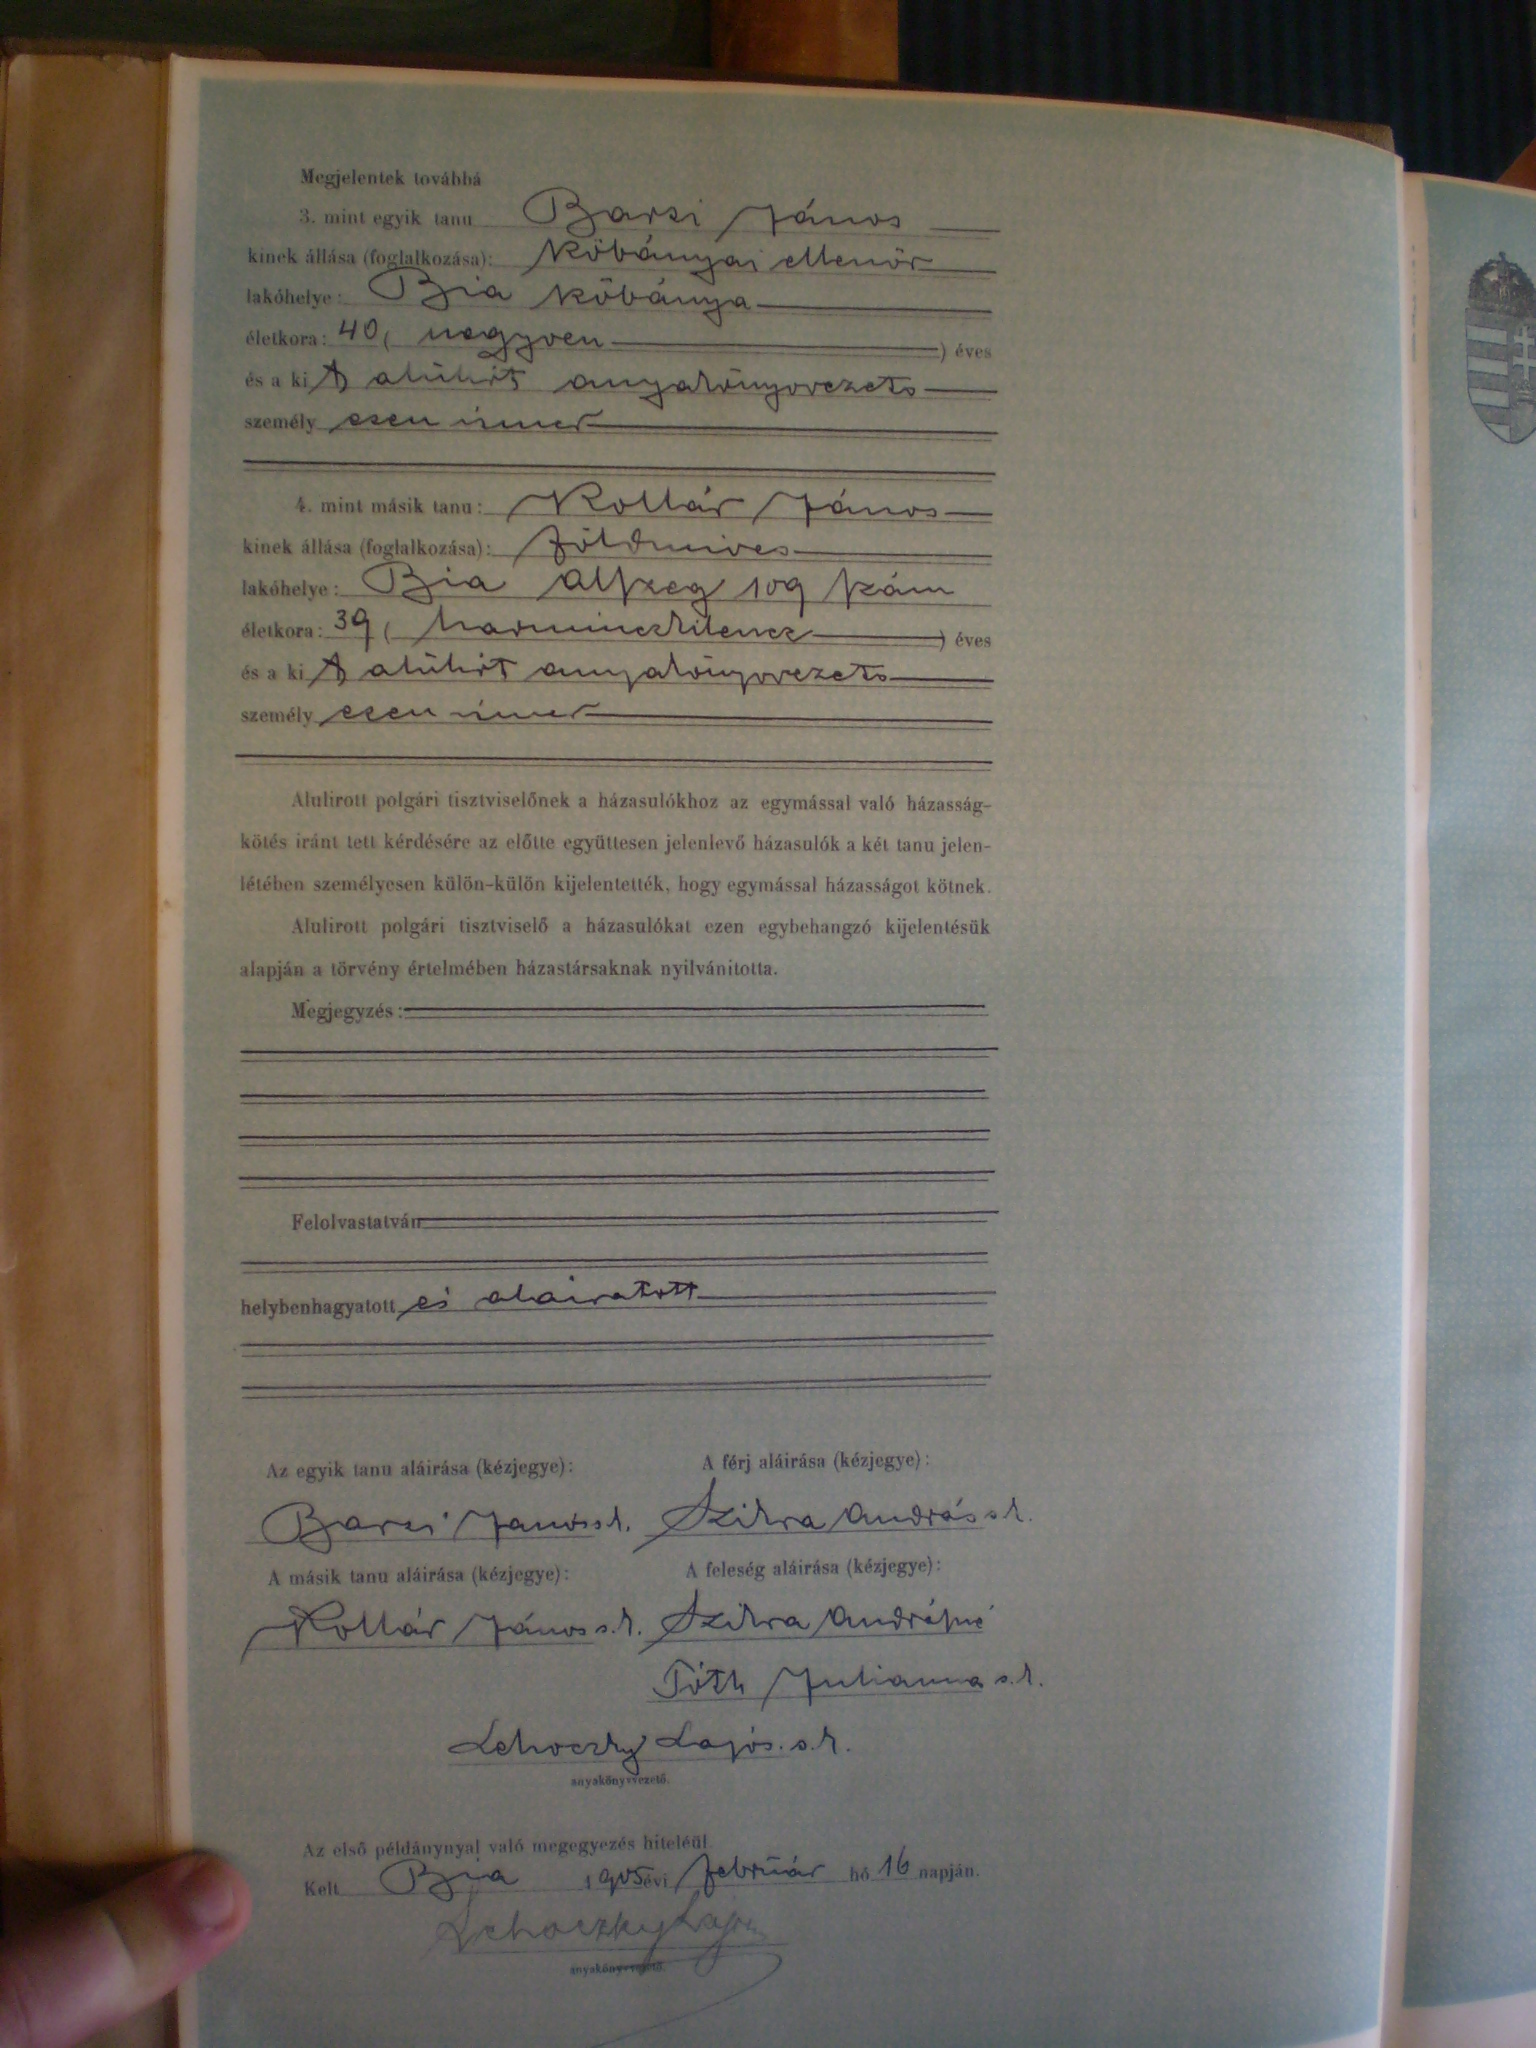 Megjelentek továbbá
3. mint egyik tanu Barsi János
kinek állása (foglalkozása): kőbányai ellenőr
lakóhelye: Bia kőbánya
életkora: 40 ( negyven ) éves
és a kit alulirt anyakönyvvezető
személyesen ismer
4. mint másik tanu: Kollár János
kinek állása (foglalkozása): földmives
lakóhelye: Bia Alszeg 109 szám
életkora: 39 ( harminczkilencz ) éves
és a kit alulirt anyakönyvvezető
személyesen ismer
Alulirott polgári tisztviselőnek a házasulókhoz az egymással való házasság-
kötés iránt tett kérdésére az előtte együttesen jelenlevő házasulók a két tanu jelen-
létében személyesen külön-külön kijelentették, hogy egymással házasságot kötnek.
Alulirott polgári tisztviselő a házasulókat ezen egybehangzó kijelentésük
alapján a törvény értelmében házastársaknak nyilvánitotta.
Megjegyzés:
Felolvastatván
helybenhagyatott és aláiratott
Az egyik tanu aláirása (kézjegye): A férj aláirása (kézjegye):
Barsi János s.k. Szikra András s.k.
A másik tanu aláirása (kézjegye): A feleség aláirása (kézjegye):
Kollár János s.k. Szikra Andrásné
Tóth Julianna s.k.
Lehoczky Lajos. s.k.
anyakönyvvezető.
Az első példánynyal való megegyezés hiteléül.
Kelt Bia 1905 évi február hó 16 napján.
Lehoczky Lajos
anyakönyvvezető.